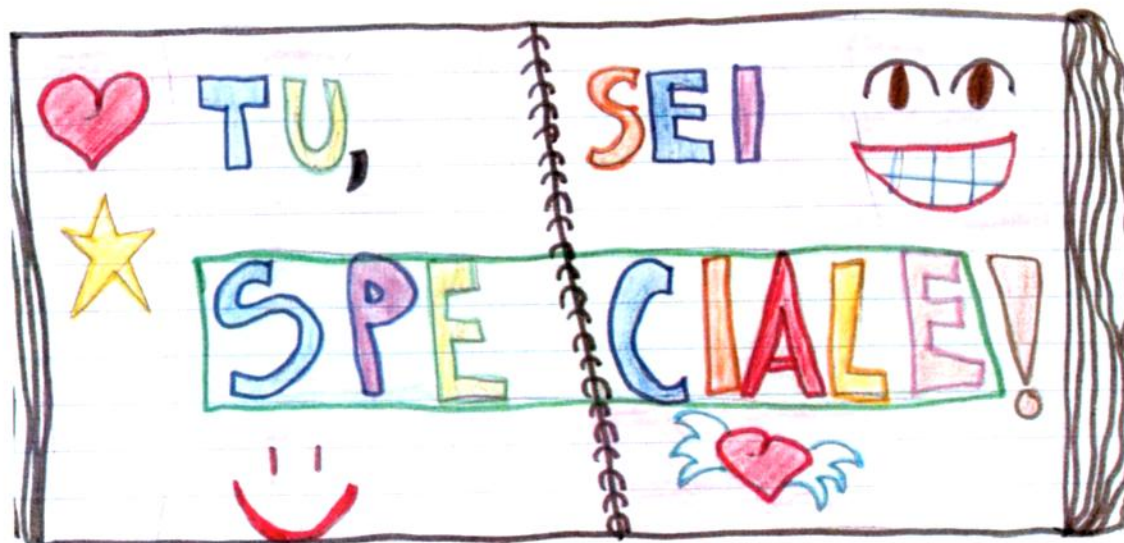 TU, SEI
SPECIALE!